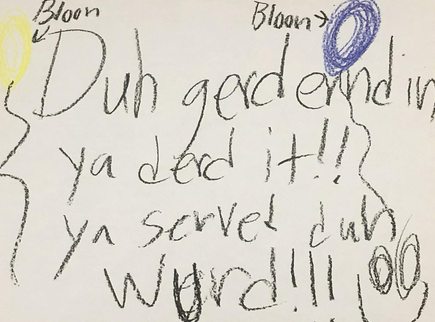 Bloon Bloon
Duh gerderndin
ya derd it!!
ya served duh
Wurd!!!